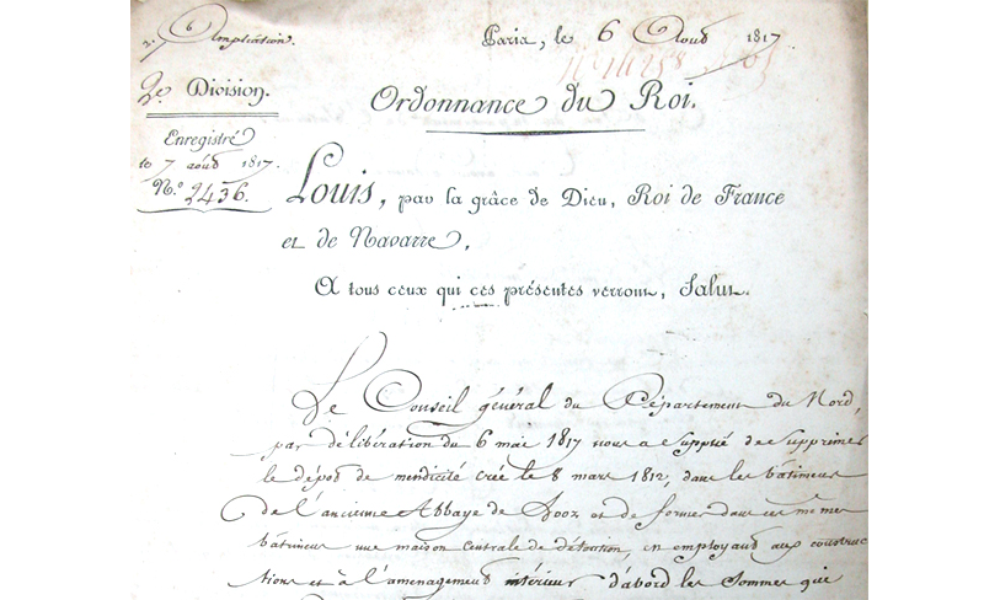 Ampliation.
Paris, le 6 Aoud 1817
2e Division.
Ordonnance du Roi.
Enregistré
le 7 aoud 1817.
N.o 2436.
Louis, par la grâce de Dieu, Roi de France
et de Navarre,
A tous ceux qui ces présentes verront, Salut.
Le Conseil général du Département du Nord,
par délibération du 6 mai 1817 nous a supplié de supprimer
le dépod de mendicité créé le 8 mars 1812, dans les bâtimens
de l'ancienne Abbaye de Looz et de former dans ces mêmes
bâtimens une maison centrale de détention, en employand aux construc
tions et à l'aménagement intérieur d'abord les sommes que